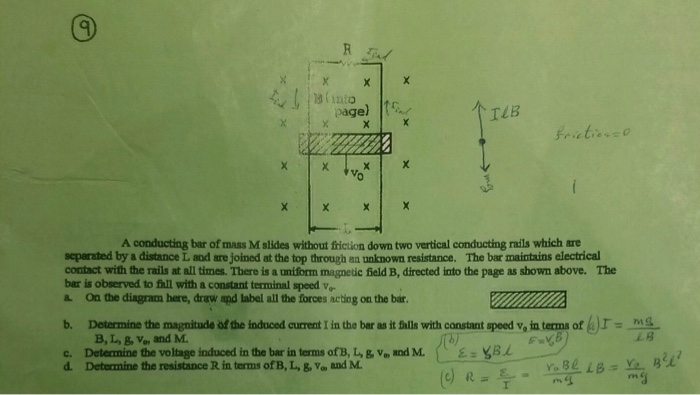 9
R
x x x x
B (into
page)
x x x x
IlB
friction=0
x x x x
v₀
x x x x
L
A conducting bar of mass M slides without friction down two vertical conducting rails which are
separated by a distance L and are joined at the top through an unknown resistance. The bar maintains electrical
contact with the rails at all times. There is a uniform magnetic field B, directed into the page as shown above. The
bar is observed to fall with a constant terminal speed v₀.
a. On the diagram here, draw and label all the forces acting on the bar.
b. Determine the magnitude of the induced current I in the bar as it falls with constant speed v₀ in terms of
B, L, g, v₀, and M.
(a) I = mg / lB
c. Determine the voltage induced in the bar in terms of B, L, g, v₀, and M.
(b) ε = v₀Bl
d. Determine the resistance R in terms of B, L, g, v₀, and M.
(c) R = ε / I = v₀Bl / mg lB = v₀ / mg B²l²